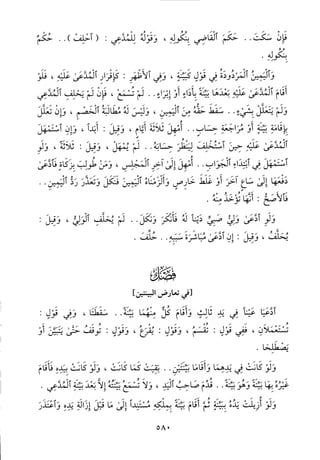 فَإِنْ سَكَتَ.. حَكَمَ ٱلْقَاضِي بِنُكُولِهِ ، وَقَوْلُهُ لِلْمُدَّعِي : ( ٱحْلِفْ ).. حُكْمٌ
بِنُكُولِهِ .
وَٱلْيَمِينُ ٱلْمَرْدُودَةُ فِي قَوْلٍ كَبَيِّنَةٍ ، وَفِي ٱلأَظْهَرِ : كَإِقْرَارِ ٱلْمُدَّعَىٰ عَلَيْهِ ، فَلَوْ
أَقَامَ ٱلْمُدَّعَىٰ عَلَيْهِ بَعْدَهَا بَيِّنَةً بِأَدَاءٍ أَوْ إِبْرَاءٍ.. لَمْ تُسْمَعْ ، فَإِنْ لَمْ يَحْلِفِ ٱلْمُدَّعِي
وَلَمْ يَتَعَلَّلْ بِشَيْءٍ.. سَقَطَ حَقُّهُ مِنَ ٱلْيَمِينِ ، وَلَيْسَ لَهُ مُطَالَبَةُ ٱلْخَصْمِ ، وَإِنْ تَعَلَّلَ
بِإِقَامَةِ بَيِّنَةٍ أَوْ مُرَاجَعَةِ حِسَابٍ.. أُمْهِلَ ثَلاَثَةَ أَيَّامٍ ، وَقِيلَ : أَبَداً ، وَإِنِ ٱسْتَمْهَلَ
ٱلْمُدَّعَىٰ عَلَيْهِ حِينَ ٱسْتُحْلِفَ لِيَنْظُرَ حِسَابَهُ.. لَمْ يُمْهَلْ ، وَقِيلَ : ثَلاَثَةً ، وَلَوِ
ٱسْتَمْهَلَ فِي ٱبْتِدَاءِ ٱلْجَوَابِ.. أُمْهِلَ إِلَىٰ آخِرِ ٱلْمَجْلِسِ ، وَمَنْ طُولِبَ بِزَكَاةٍ فَٱدَّعَىٰ
دَفْعَهَا إِلَىٰ سَاعٍ آخَرَ أَوْ غَلَطَ خَارِصٍ وَأَلْزَمْنَاهُ ٱلْيَمِينَ فَنَكَلَ وَتَعَذَّرَ رَدُّ ٱلْيَمِينِ..
فَٱلأَصَحُّ : أَنَّهَا تُؤْخَذُ مِنْهُ .
وَلَوِ ٱدَّعَىٰ وَلِيُّ صَبِيٍّ دَيْناً لَهُ فَأَنْكَرَ وَنَكَلَ.. لَمْ يُحَلَّفِ ٱلْوَلِيُّ ، وَقِيلَ :
يُحَلَّفُ ، وَقِيلَ : إِنِ ٱدَّعَىٰ مُبَاشَرَةَ سَبَبِهِ.. حُلِّفَ .
فَصْلٌ
[في تعارض البينتين]
ٱدَّعَيَا عَيْناً فِي يَدِ ثَالِثٍ وَأَقَامَ كُلٌّ مِنْهُمَا بَيِّنَةً.. سَقَطَتَا ، وَفِي قَوْلٍ :
تُسْتَعْمَلاَنِ ، فَفِي قَوْلٍ : تُقْسَمُ ، وَقَوْلٍ : يُقْرَعُ ، وَقَوْلٍ : تُوقَفُ حَتَّىٰ يَتَبَيَّنَ أَوْ
يَصْطَلِحَا .
وَلَوْ كَانَتْ فِي يَدِهِمَا وَأَقَامَا بَيِّنَتَيْنِ.. بَقِيَتْ كَمَا كَانَتْ ، وَلَوْ كَانَتْ بِيَدِهِ فَأَقَامَ
غَيْرُهُ بِهَا بَيِّنَةً وَهُوَ بَيِّنَةً.. قُدِّمَ صَاحِبُ ٱلْيَدِ ، وَلاَ تُسْمَعُ بَيِّنَتُهُ إِلاَّ بَعْدَ بَيِّنَةِ ٱلْمُدَّعِي .
وَلَوْ أُزِيلَتْ يَدُهُ بِبَيِّنَةٍ ثُمَّ أَقَامَ بَيِّنَةً بِمِلْكِهِ مُسْتَنِداً إِلَىٰ مَا قَبْلَ إِزَالَةِ يَدِهِ وَٱعْتَذَرَ
٥٨٠